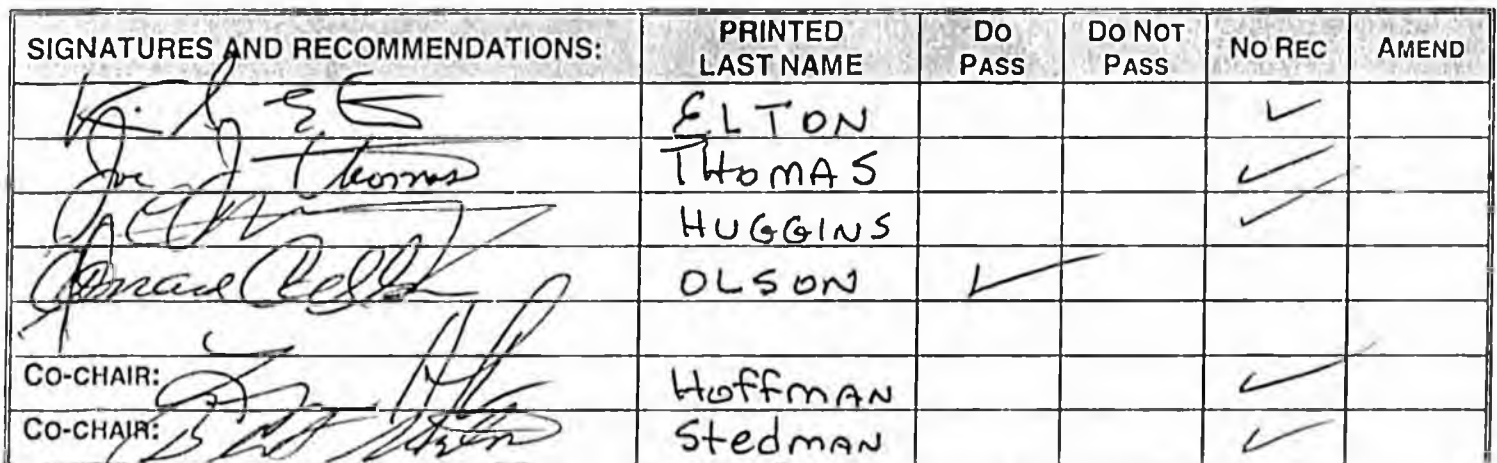 SIGNATURES AND RECOMMENDATIONS: PRINTED LAST NAME DO PASS DO NOT PASS NO REC AMEND
ELTON ✓
Joe J Thomas THOMAS ✓
HUGGINS ✓
OLSON ✓
CO-CHAIR: HOFFMAN ✓
CO-CHAIR: Stedman ✓